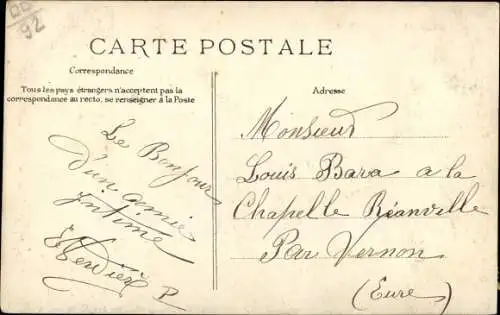 92
CARTE POSTALE
Correspondance
Tous les pays étrangers n'acceptent pas la
correspondance au recto, se renseigner à la Poste
Le Bonjour
d'un amie
Intime
Adresse
Monsieur
Louis Bara a la
Chapelle Réanville
Par Vernon
(Eure)